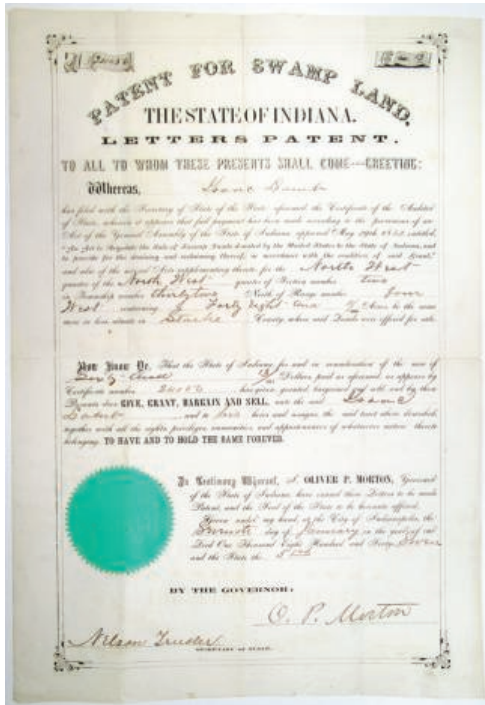 PATENT FOR SWAMP LAND.
THE STATE OF INDIANA.
LETTERS PATENT.
TO ALL TO WHOM THESE PRESENTS SHALL COME—GREETING:
Whereas, Isaac
has filed with the Secretary of State of the State aforesaid the Certificate of the Auditor
of State, whereby it appears that full payment has been made according to the provisions of an
Act of the General Assembly of the State of Indiana approved May 29th 1852, entitled,
"An Act to Regulate the Sale of Swamp Lands donated by the United States to the State of Indiana, and
to provide for the draining and reclaiming thereof, in accordance with the condition of said Grant,"
and also of the several Acts supplementary thereto for the North West
quarter of the North West quarter of Section number two
in Township number thirty two North of Range number four
West containing Forty Eight and Acres be the same
more or less, situate in Starke County, where said Lands were offered for sale.
Now Know Ye, That the State of Indiana for and in consideration of the sum of
Dollars paid as aforesaid as appears by
Certificate number has given granted bargained and sold and by these
Presents does GIVE, GRANT, BARGAIN AND SELL, unto the said Isaac
and to his heirs and assigns the said tract above described,
together with all the rights privileges immunities and appurtenances of whatsoever nature thereto
belonging, TO HAVE AND TO HOLD THE SAME FOREVER.
In Testimony Whereof, I, OLIVER P. MORTON, Governor
of the State of Indiana, have caused these Letters to be made
Patent, and the Seal of the State to be hereunto affixed.
Given under my hand at the City of Indianapolis, the
day of January in the year of our
Lord One Thousand Eight Hundred and Sixty Seven
and the State the 51st
BY THE GOVERNOR:
O. P. Morton
Nelson Trusler
SECRETARY OF STATE.